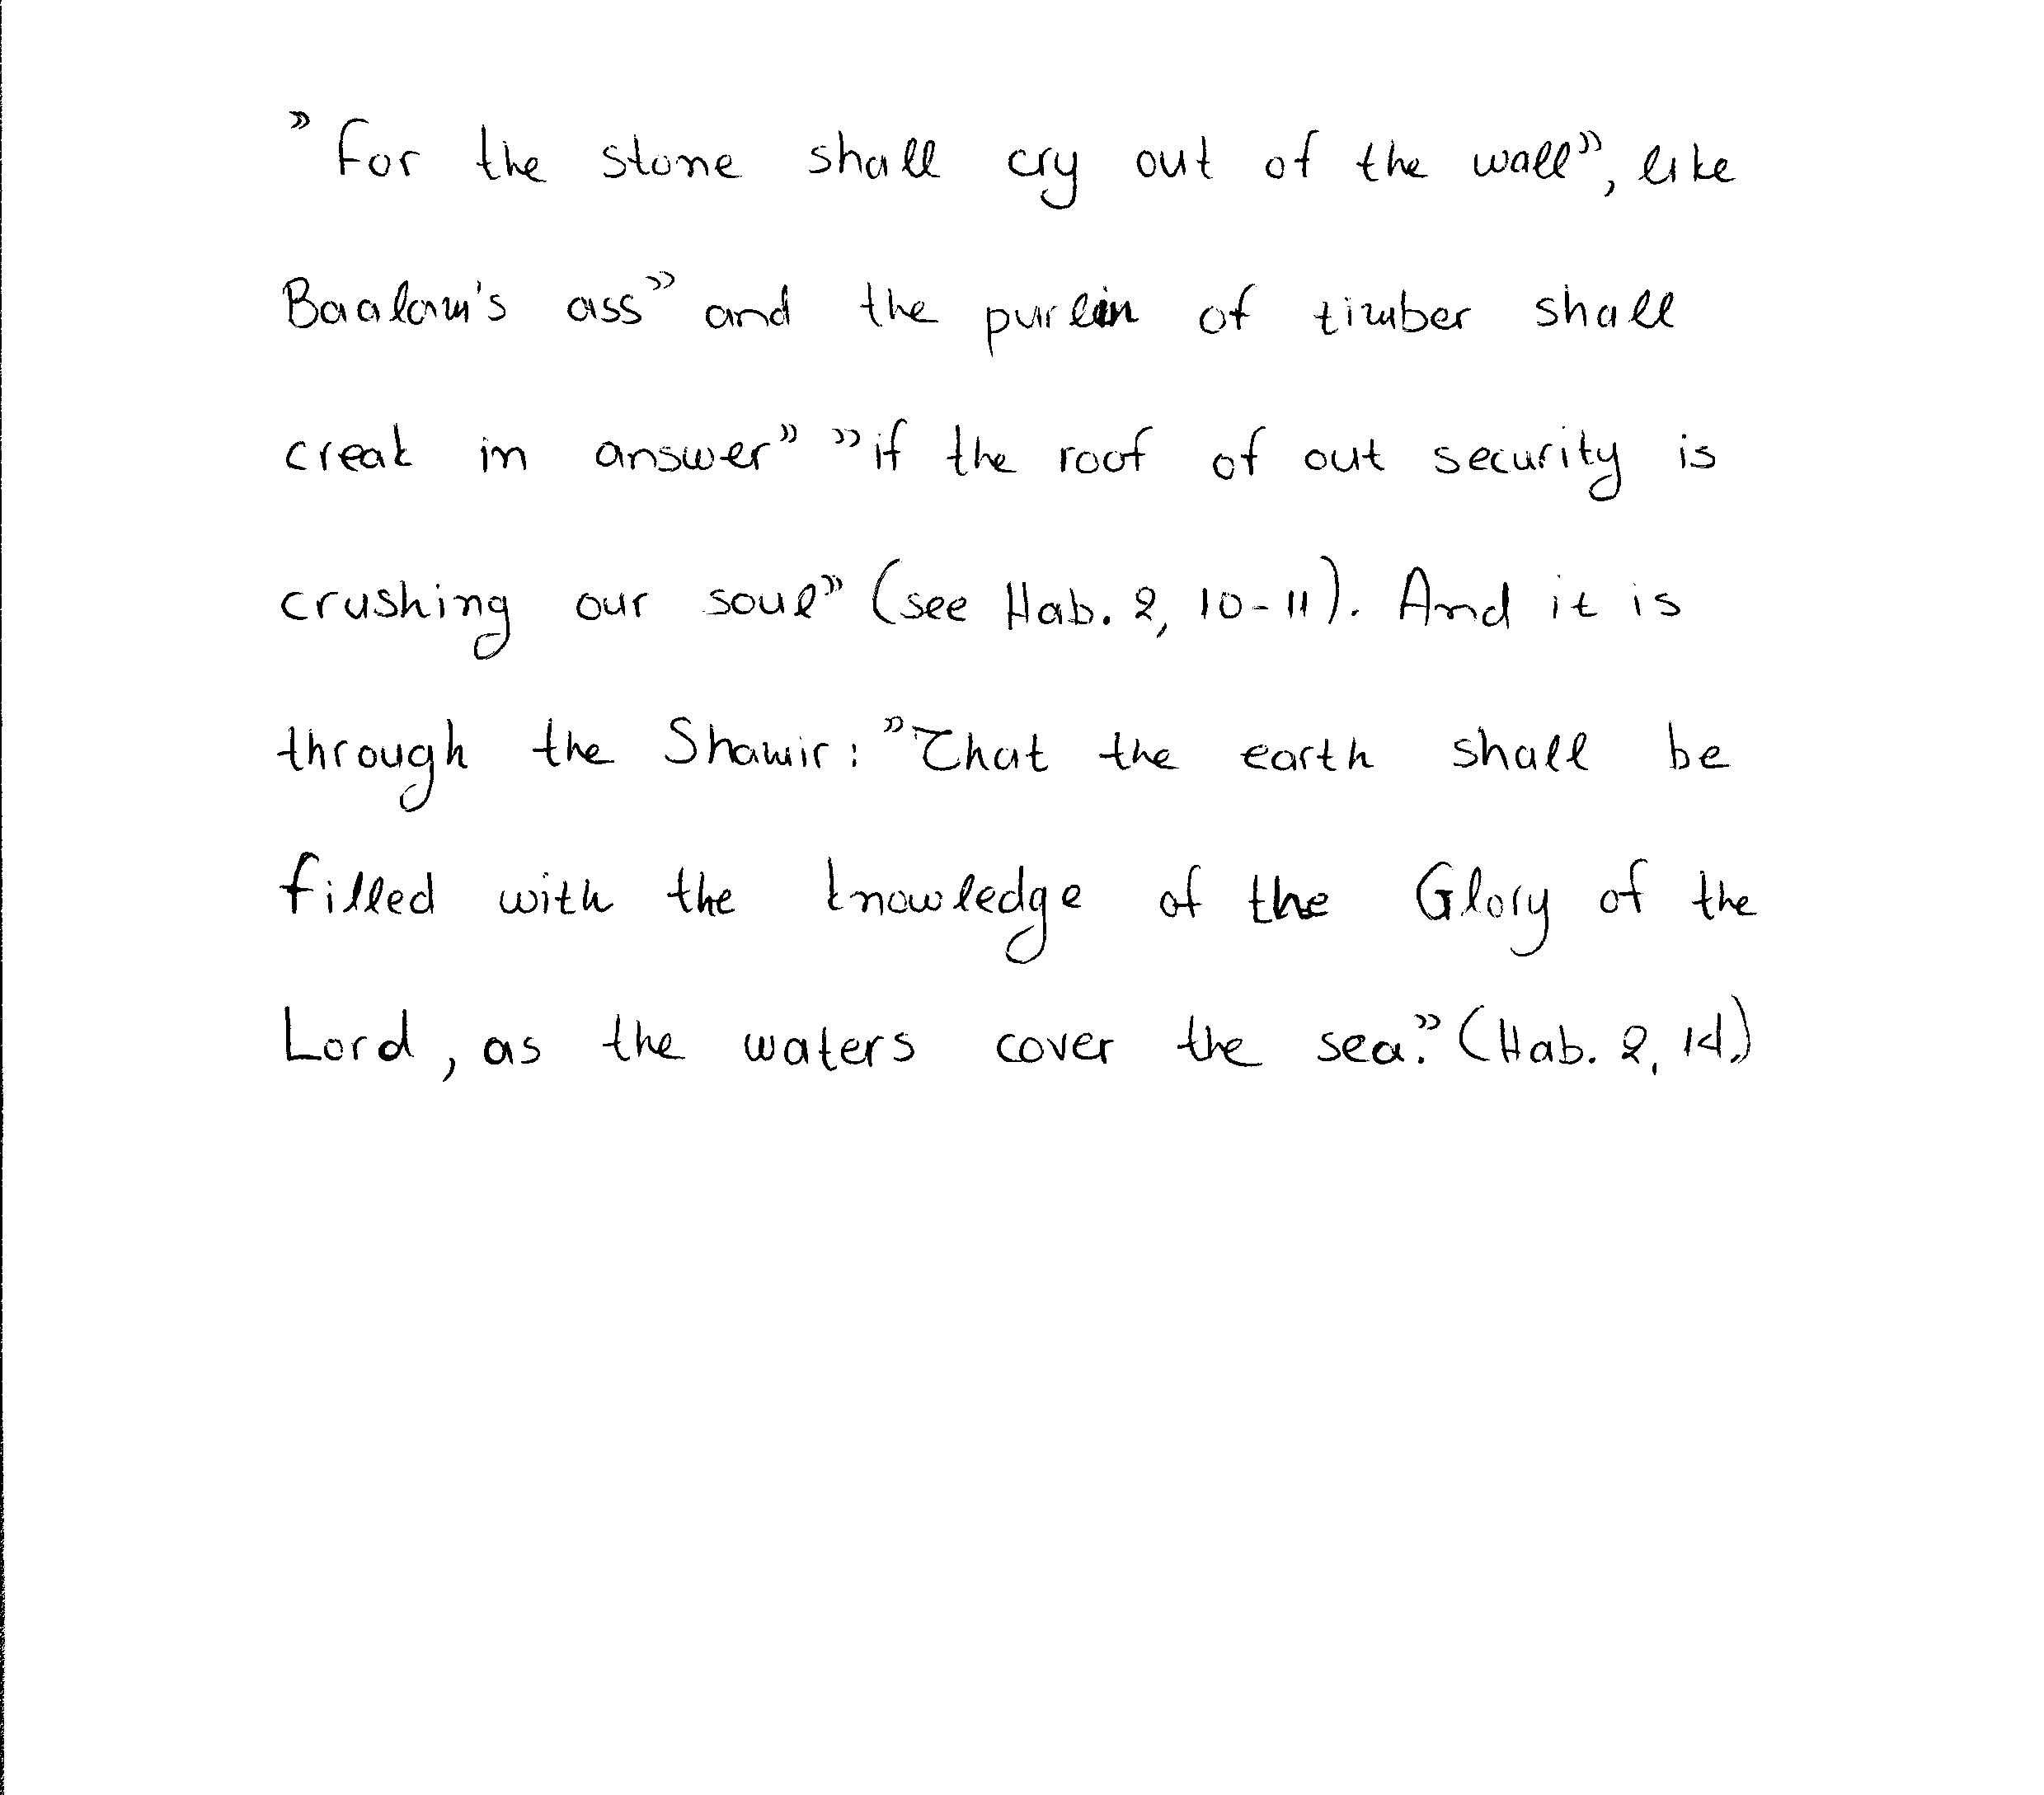 "For the stone shall cry out of the wall", like
Baalam's ass" and the purlin of timber shall
creak in answer" "if the roof of out security is
crushing our soul" (see Hab. 2, 10-11). And it is
through the Shamir: "That the earth shall be
filled with the knowledge of the Glory of the
Lord, as the waters cover the sea." (Hab. 2, 14)